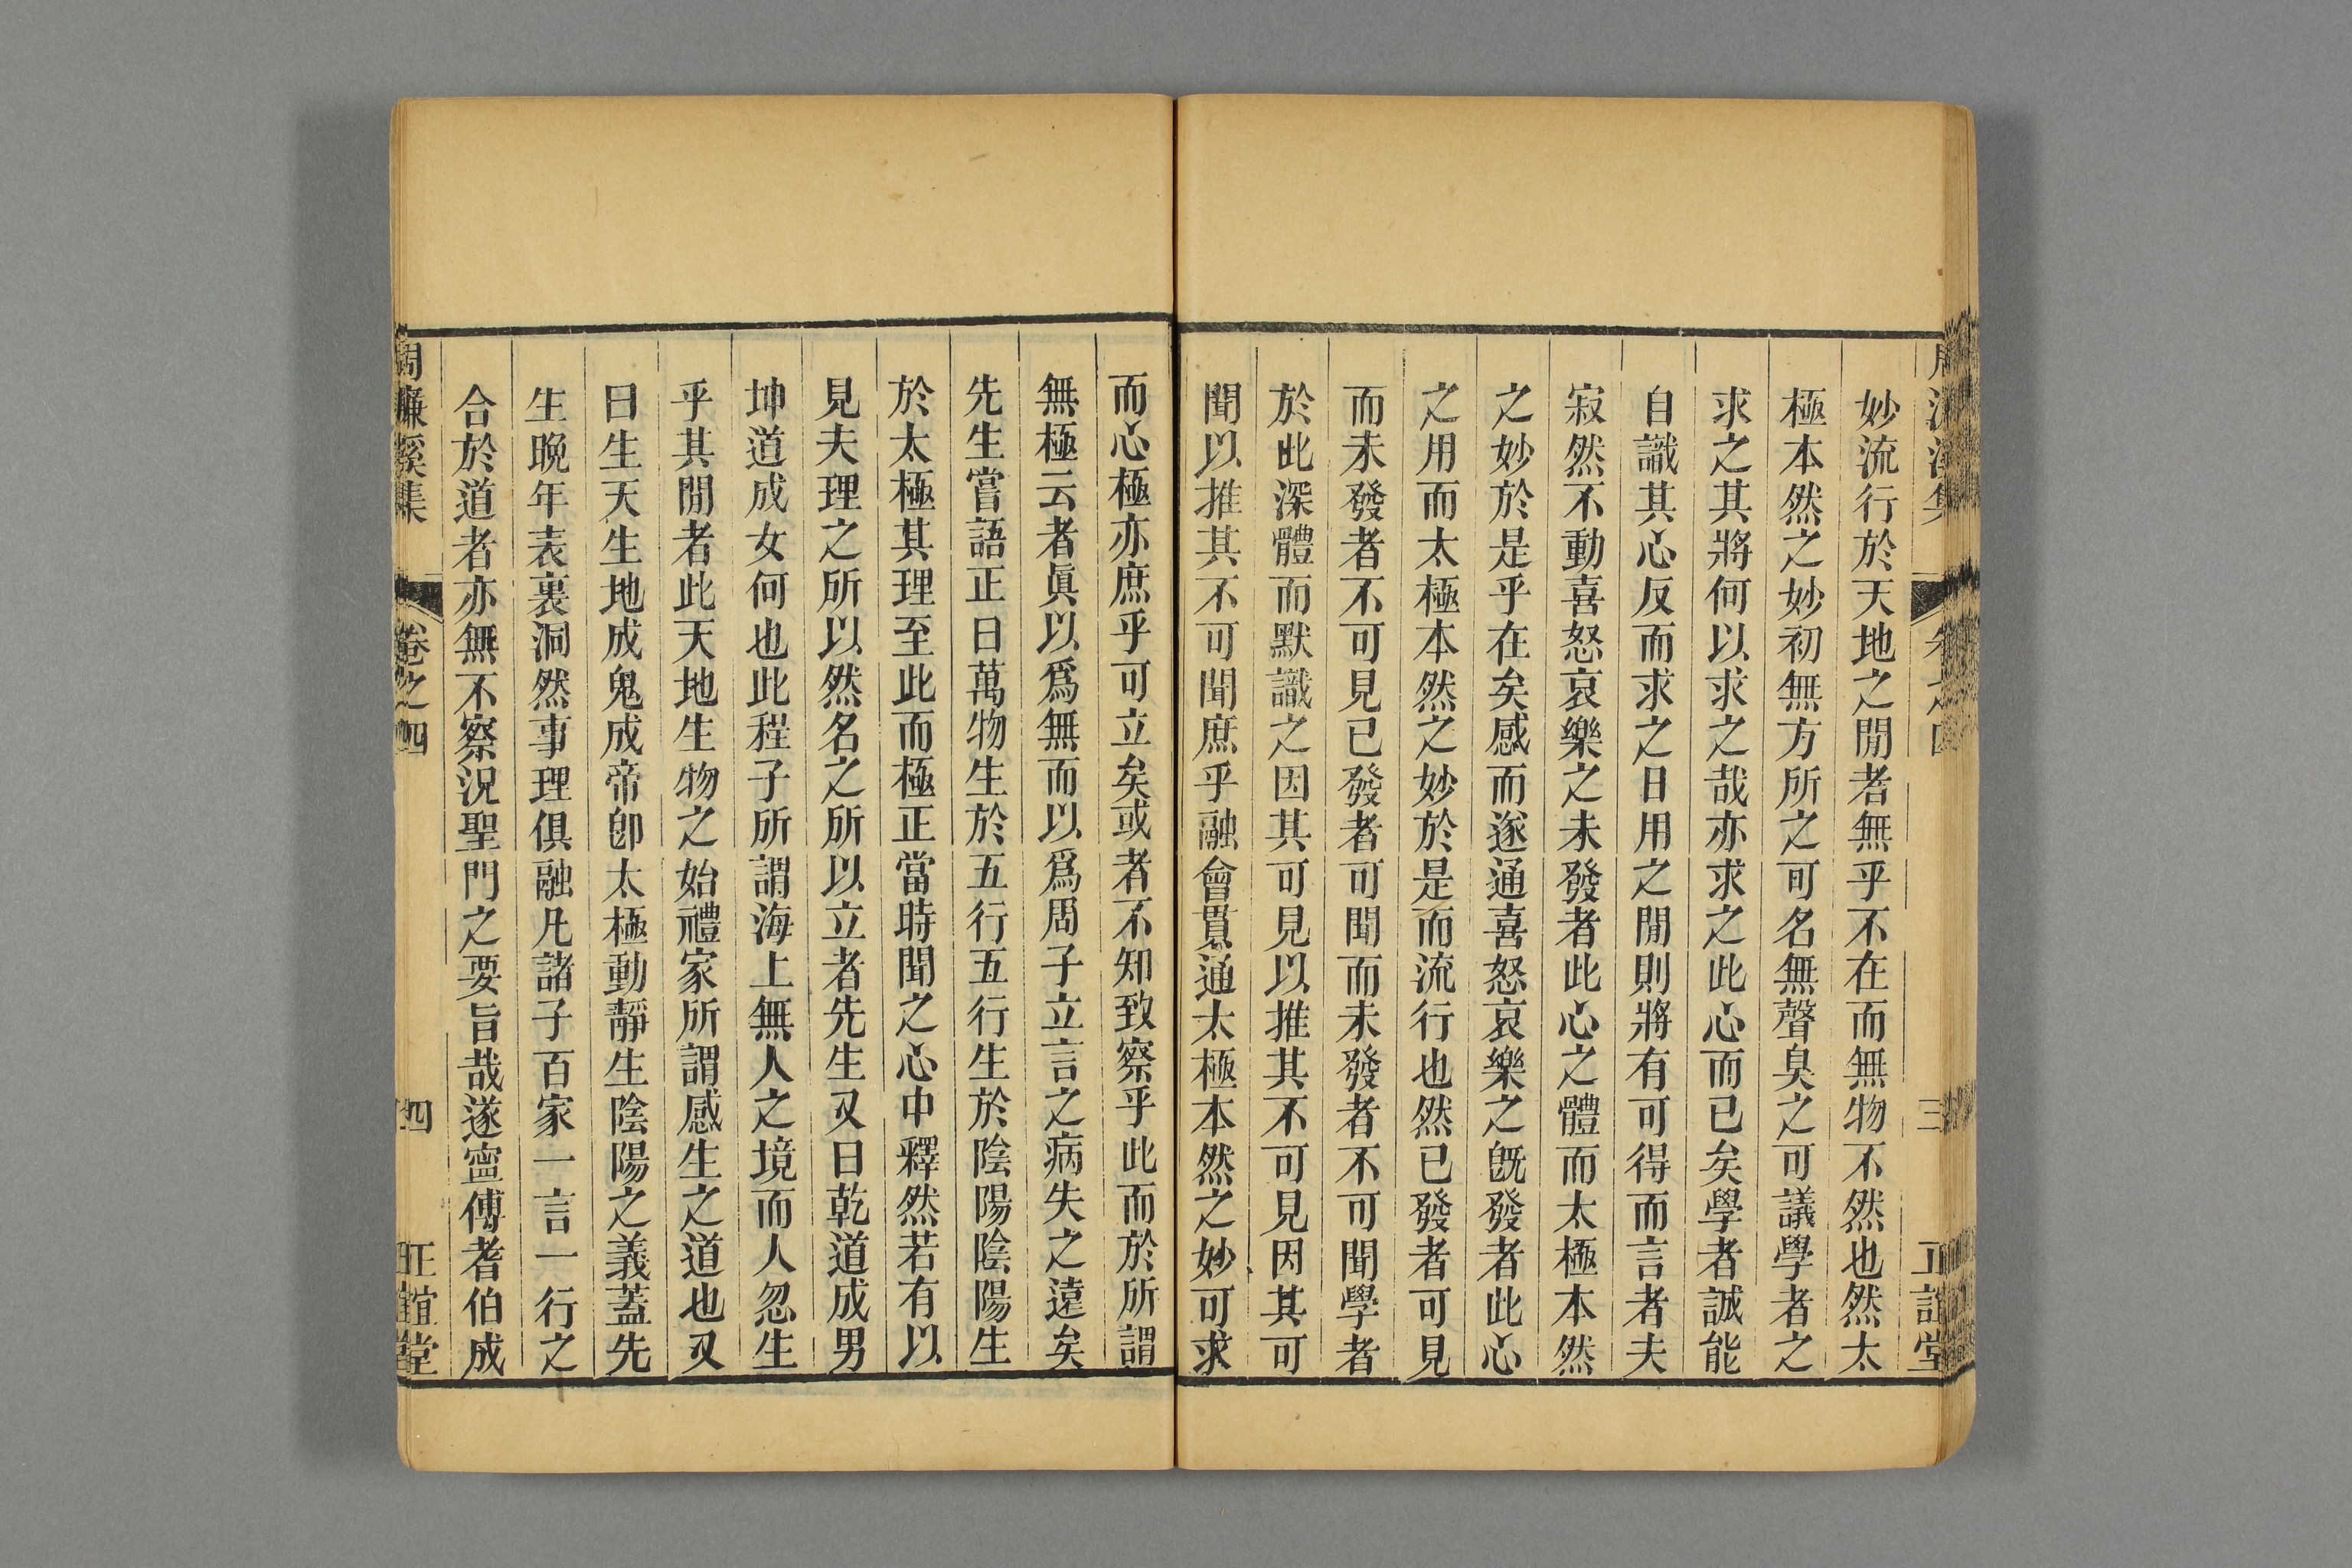 妙流行於天地之閒者無乎不在而無物不然也然太
極本然之妙初無方所之可名無聲臭之可議學者之
求之其將何以求之哉亦求之此心而已矣學者誠能
自識其心反而求之日用之閒則將有可得而言者夫
寂然不動喜怒哀樂之未發者此心之體而太極本然
之妙於是乎在矣感而遂通喜怒哀樂之旣發者此心
之用而太極本然之妙於是而流行也然已發者可見
而未發者不可見已發者可聞而未發者不可聞學者
於此深體而默識之因其可見以推其不可見因其可
聞以推其不可聞庶乎融會貫通太極本然之妙可求
而心極亦庶乎可立矣或者不知致察乎此而於所謂
無極云者眞以爲無而以爲周子立言之病失之遠矣
先生嘗語正曰萬物生於五行五行生於陰陽陰陽生
於太極其理至此而極正當時聞之心中釋然若有以
見夫理之所以然名之所以立者先生又曰乾道成男
坤道成女何也此程子所謂海上無人之境而人忽生
乎其閒者此天地生物之始禮家所謂感生之道也又
曰生天生地成鬼成帝卽太極動靜生陰陽之義蓋先
生晚年表裏洞然事理俱融凡諸子百家一言一行之
合於道者亦無不察況聖門之要旨哉遂寧傅耆伯成
周濂溪集 卷之四 四 正誼堂